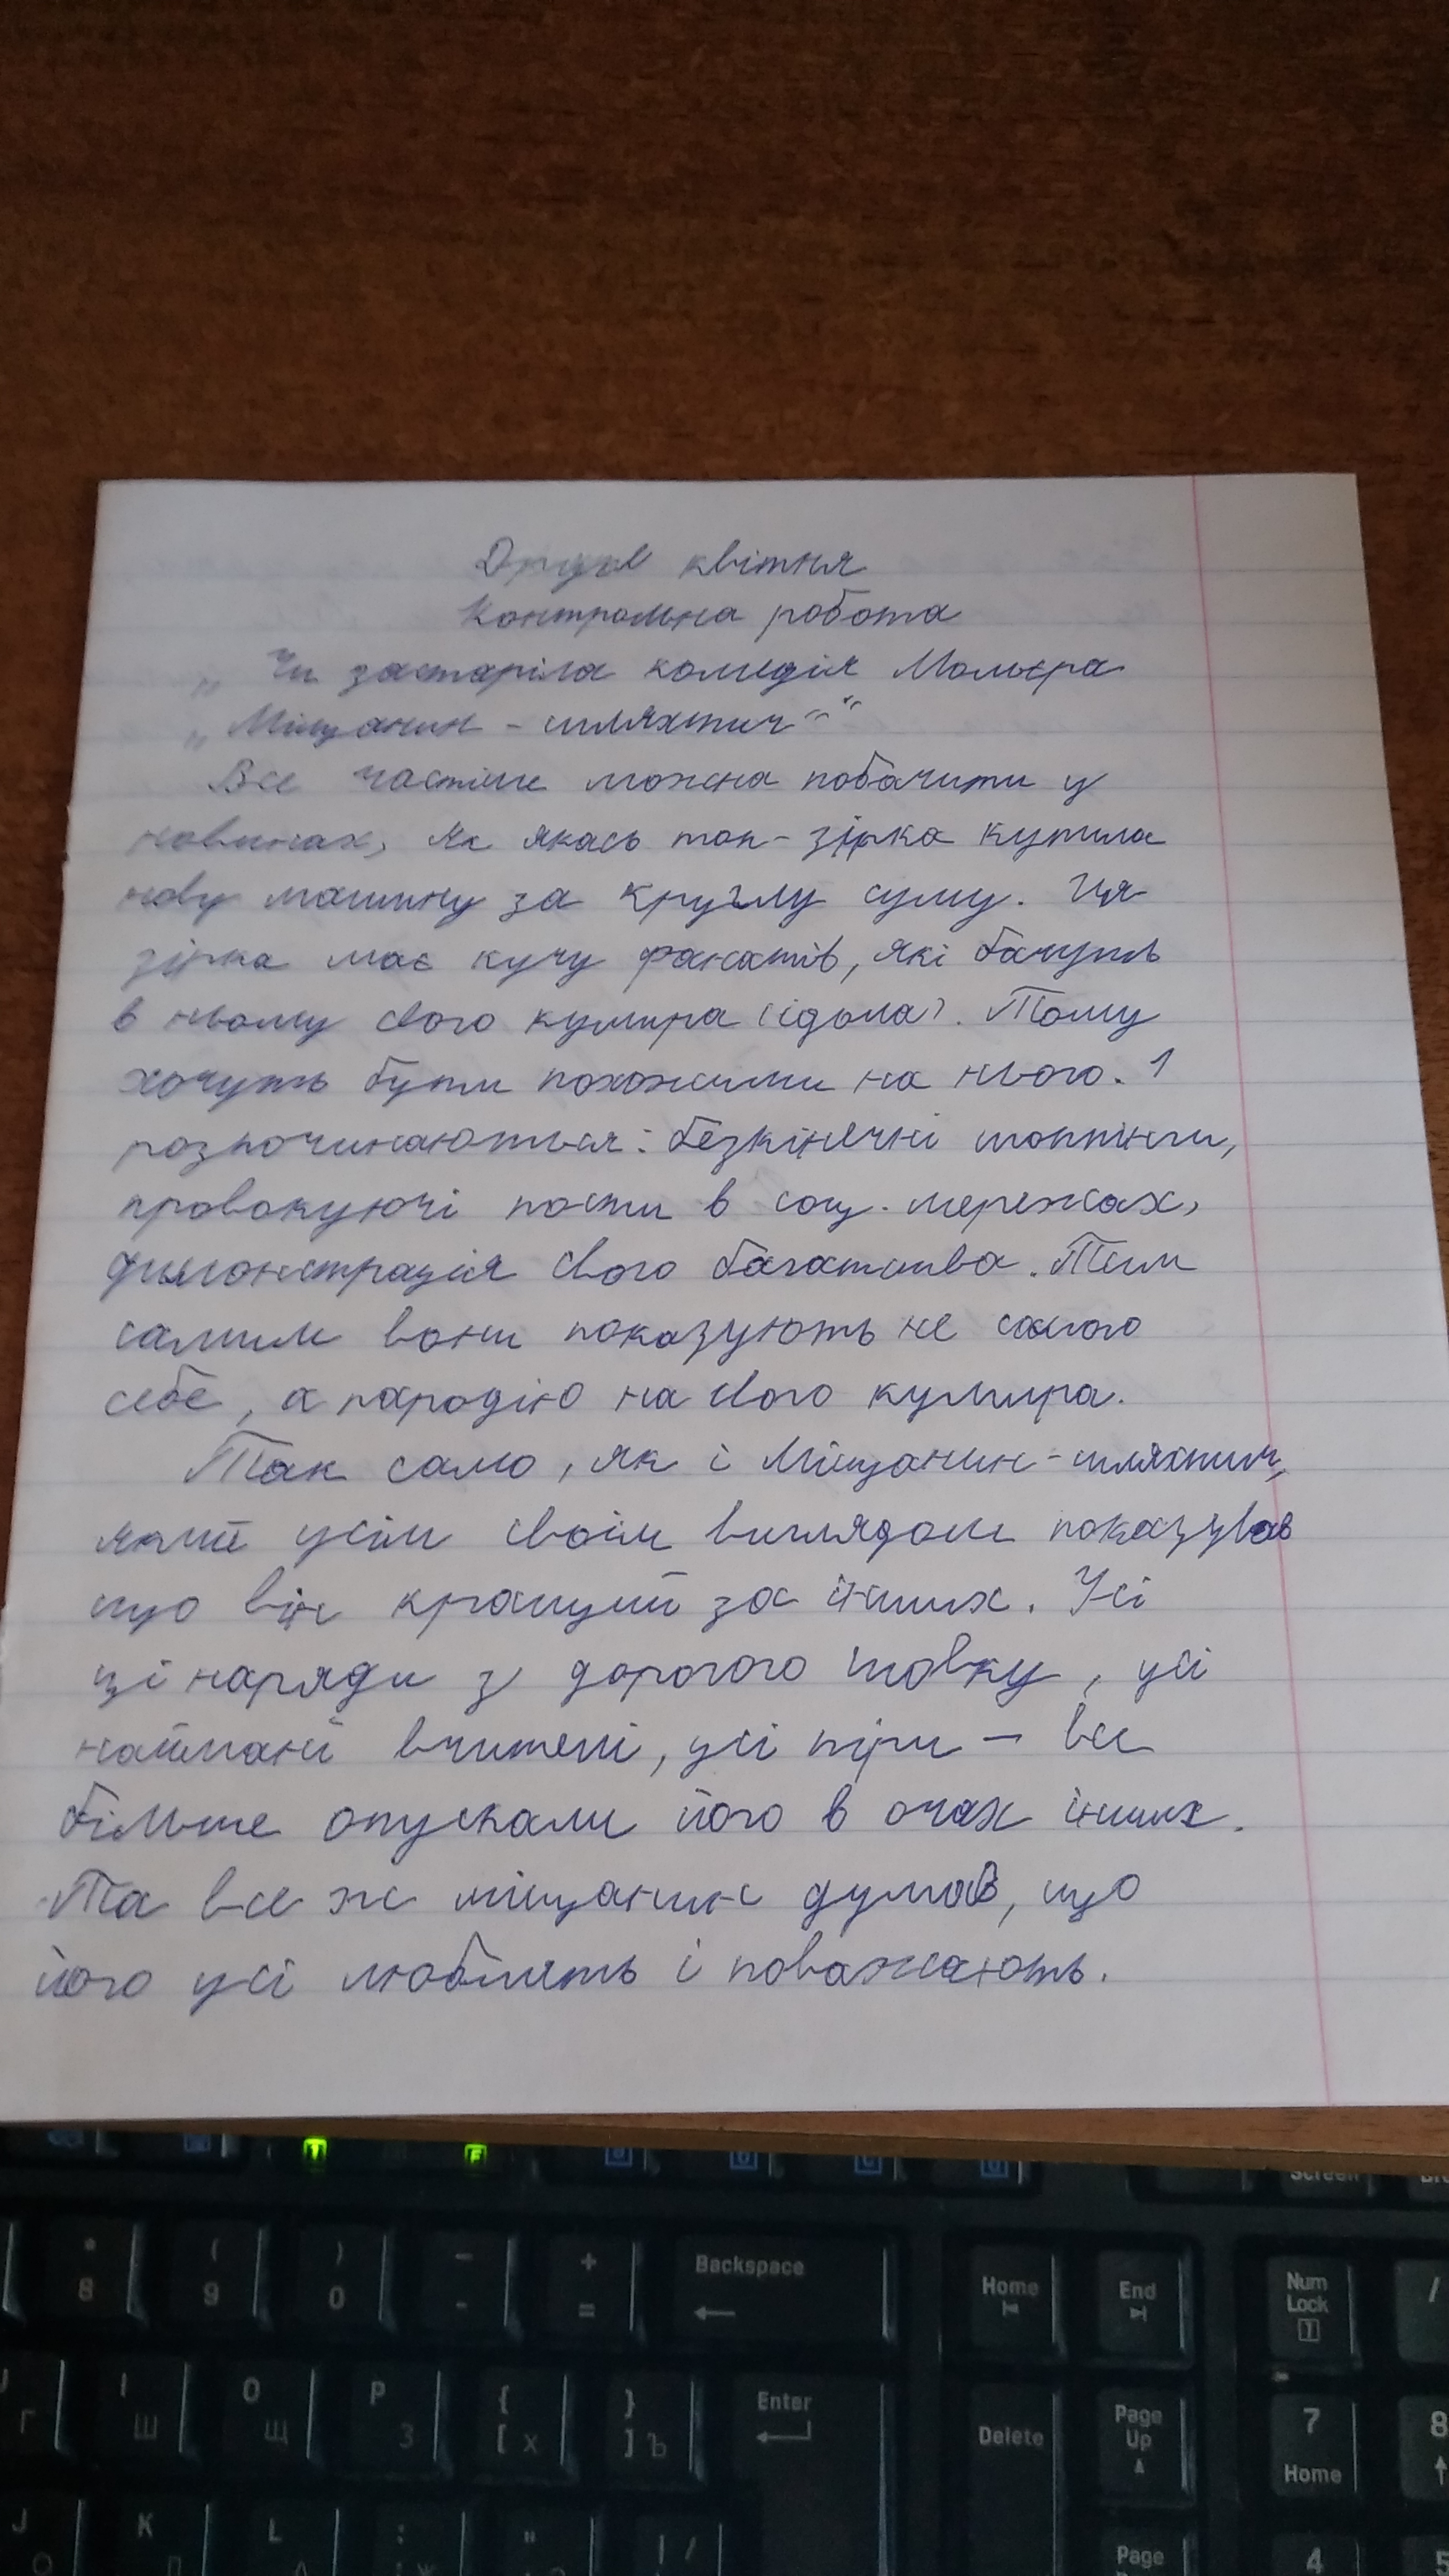 Друге квітня
Контрольна робота
„Чи застаріла комедія Мольєра
„Міщанин - шляхтич““
Все частіше можна побачити у
новинах, як якась топ-зірка купила
нову машину за круглу суму. Ця
зірка має кучу фанатів, які бачуть
в ньому свого кумира (ідола). Тому
хочуть бути похожими на нього. І
розпочинаються: безкінечні шоппінги,
провокуючі пости в соц. мережах,
димонстрація свого багатства. Тим
самим вони показують не самого
себе, а пародію на свого кумира.
Так само, як і Міщанин-шляхтич,
який усім своїм виглядом показував
що він кращий за інших. Усі
ці наряди з дорогого шовку, усі
наймані вчителі, усі пірі – все
більше опускали його в очах інших.
Та все ж міщанин думав, що
його усі люблять і поважають.
Backspace
Home
End
Num
Lock
Enter
Delete
Page
Up
7
Home
8
9
0
Page
4
5